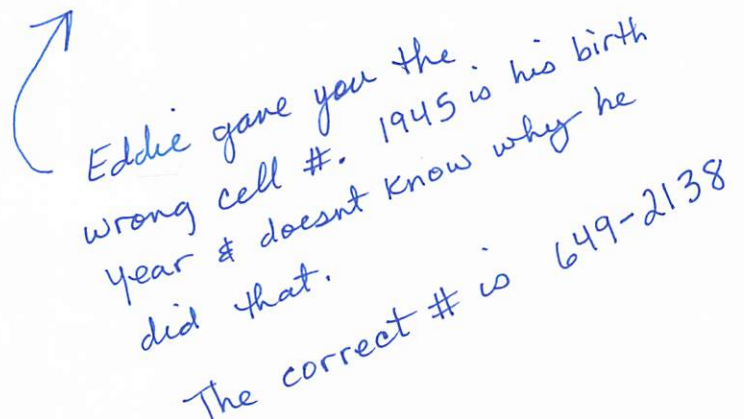 Eddie gave you the
wrong cell #. 1945 is his birth
year & doesnt know why he
did that.
The correct # is 649-2138